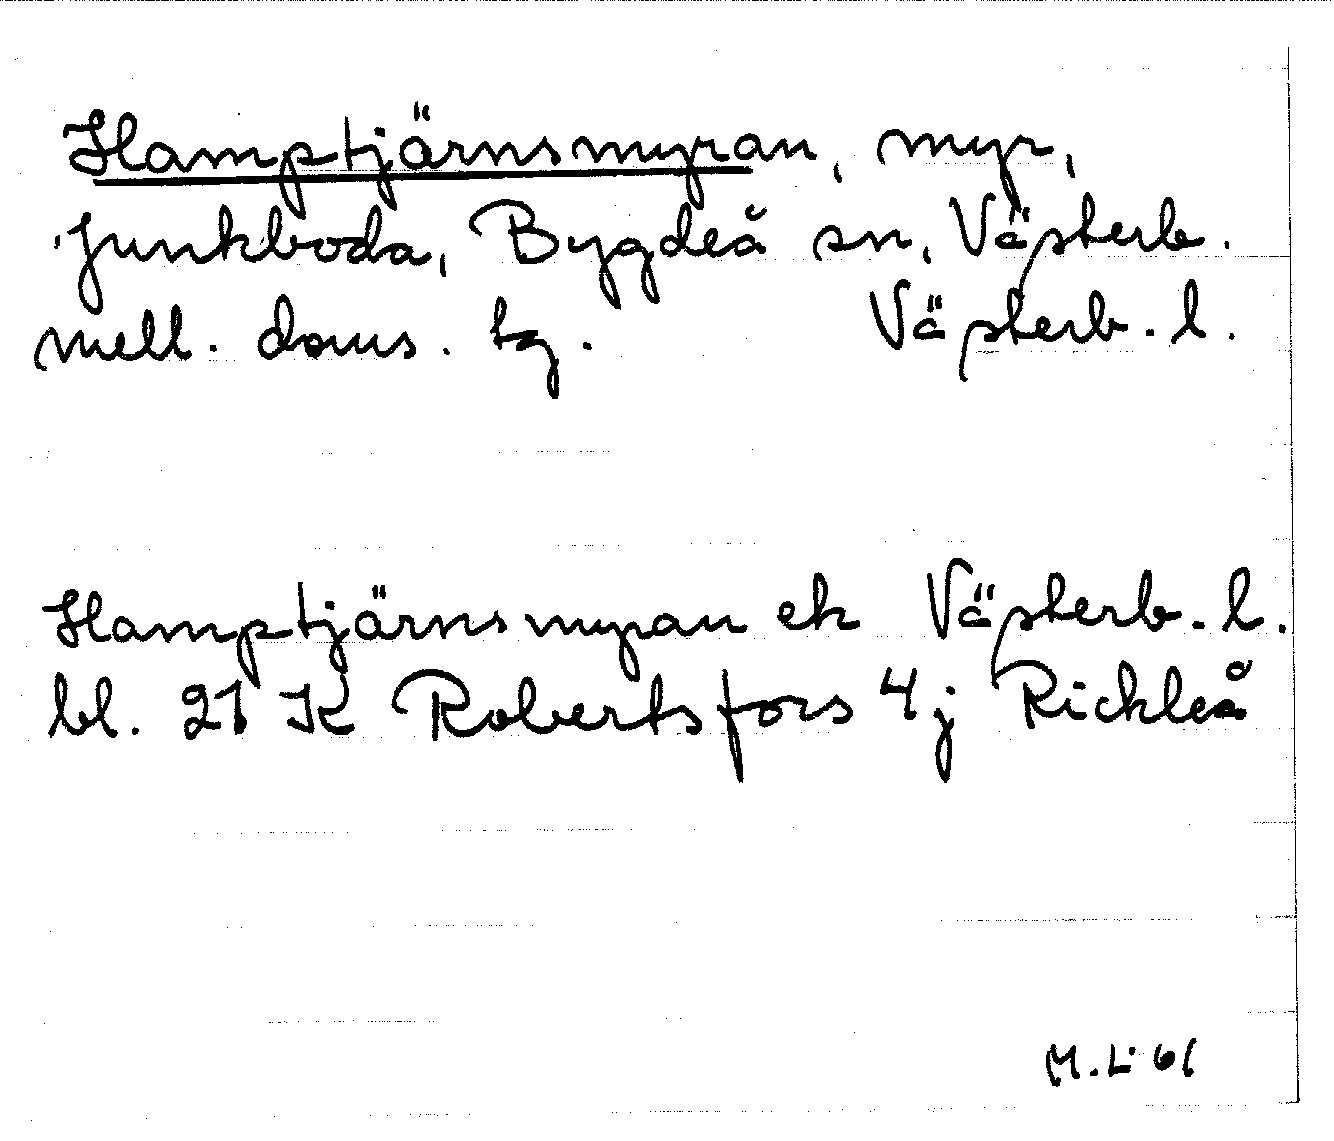 Hamptjärnsmyran, myr,
Junkboda, Bygdeå sn, Västerb.
mell. doms. tg. Västerb. l.
Hamptjärnsmyran ek Västerb. l.
bl. 21 K Robertsfors 4j Rickleå
M.L. 61